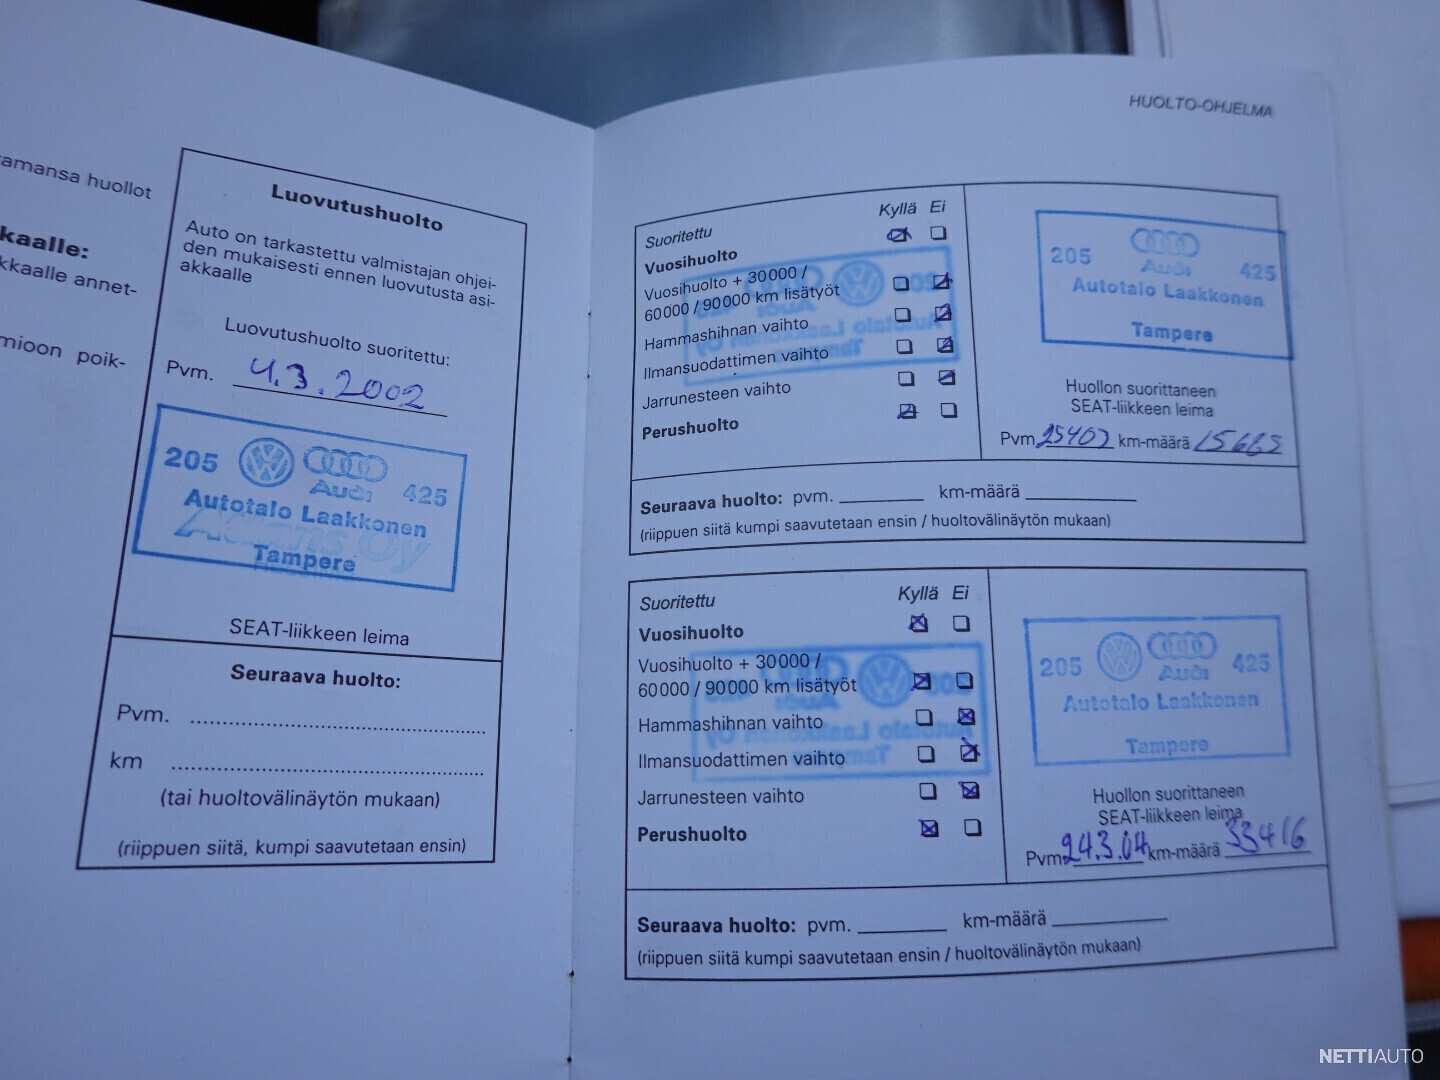 amansa huollot
kaalle:
kkaalle annet-
mioon poik-
Luovutushuolto
Auto on tarkastettu valmistajan ohjei-
den mukaisesti ennen luovutusta asi-
akkaalle
Luovutushuolto suoritettu:
Pvm. 4.3.2002
205 Audi 425
Autotalo Laakkonen
Tampere
SEAT-liikkeen leima
Seuraava huolto:
Pvm.
km
(tai huoltovälinäytön mukaan)
(riippuen siitä, kumpi saavutetaan ensin)
HUOLTO-OHJELMA
Suoritettu Kyllä Ei
Vuosihuolto
Vuosihuolto + 30000 /
60000 / 90000 km lisätyöt
Hammashihnan vaihto
Ilmansuodattimen vaihto
Jarrunesteen vaihto
Perushuolto
205 Audi 425
Autotalo Laakkonen
Tampere
Huollon suorittaneen
SEAT-liikkeen leima
Pvm km-määrä
Seuraava huolto: pvm. km-määrä
(riippuen siitä kumpi saavutetaan ensin / huoltovälinäytön mukaan)
Suoritettu Kyllä Ei
Vuosihuolto
Vuosihuolto + 30000 /
60000 / 90000 km lisätyöt
Hammashihnan vaihto
Ilmansuodattimen vaihto
Jarrunesteen vaihto
Perushuolto
205 Audi 425
Autotalo Laakkonen
Tampere
Huollon suorittaneen
SEAT-liikkeen leima
Pvm 24.3.04 km-määrä 33416
Seuraava huolto: pvm. km-määrä
(riippuen siitä kumpi saavutetaan ensin / huoltovälinäytön mukaan)
NETTIAUTO